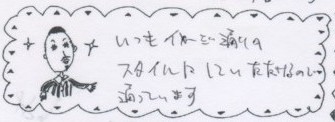 いつもイメージ通りの
スタイルにしていただけるので
通っています